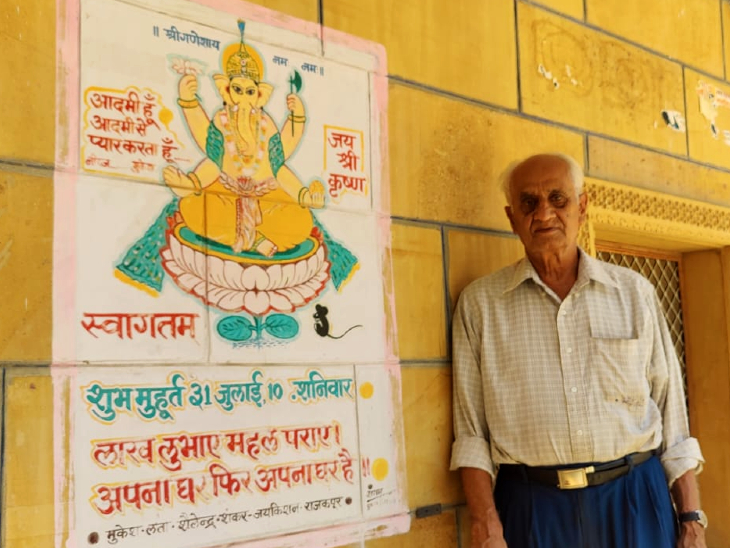 ॥ श्रीगणेशाय नम नम ॥
आदमी हूँ
आदमी से
प्यार करता हूँ
जय
श्री
कृष्ण
स्वागतम
शुभ मुहूर्त 31 जुलाई, 10 . शनिवार
लाख लुभाए महल पराए।
अपना घर फिर अपना घर है॥
• मुकेश - लता - शैलेन्द्र - शंकर - जयकिशन - राजकपूर •